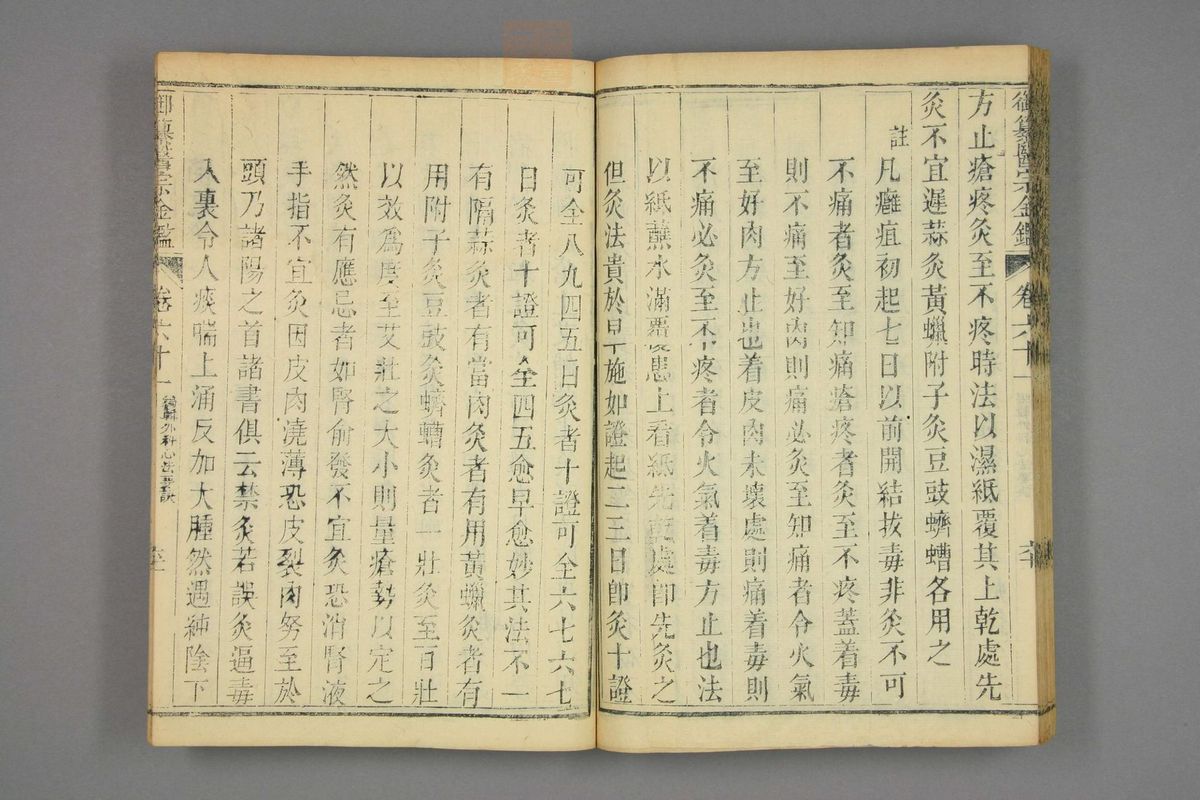 御纂醫宗金鑑 卷六十一
方止瘡疼灸至不疼時法以濕紙覆其上乾處先
灸不宜遲蒜灸黃蠟附子灸豆豉蠐螬各用之
註凡癰疽初起七日以前開結拔毒非灸不可
不痛者灸至知痛瘡疼者灸至不疼蓋着毒
則不痛至好肉則痛必灸至知痛者令火氣
至好肉方止也着皮肉未壞處則痛着毒則
不痛必灸至不疼者令火氣着毒方止也法
以紙蘸水滿覆患上看紙先乾處即先灸之
但灸法貴於早施如證起二三日即灸十證
可全八九四五日灸者十證可全六七六七
日灸者十證可全四五愈早愈妙其法不一
有隔蒜灸者有當肉灸者有用黃蠟灸者有
用附子灸豆豉灸蠐螬灸者一壯灸至百壯
以效爲度至艾壯之大小則量瘡勢以定之
然灸有應忌者如腎俞發不宜灸恐消腎液
手指不宜灸因皮肉澆薄恐皮裂肉努至於
頭乃諸陽之首諸書俱云禁灸若誤灸逼毒
入裏令人痰喘上涌反加大腫然遇純陰下
御纂醫宗金鑑 卷六十一 編輯外科心法要訣